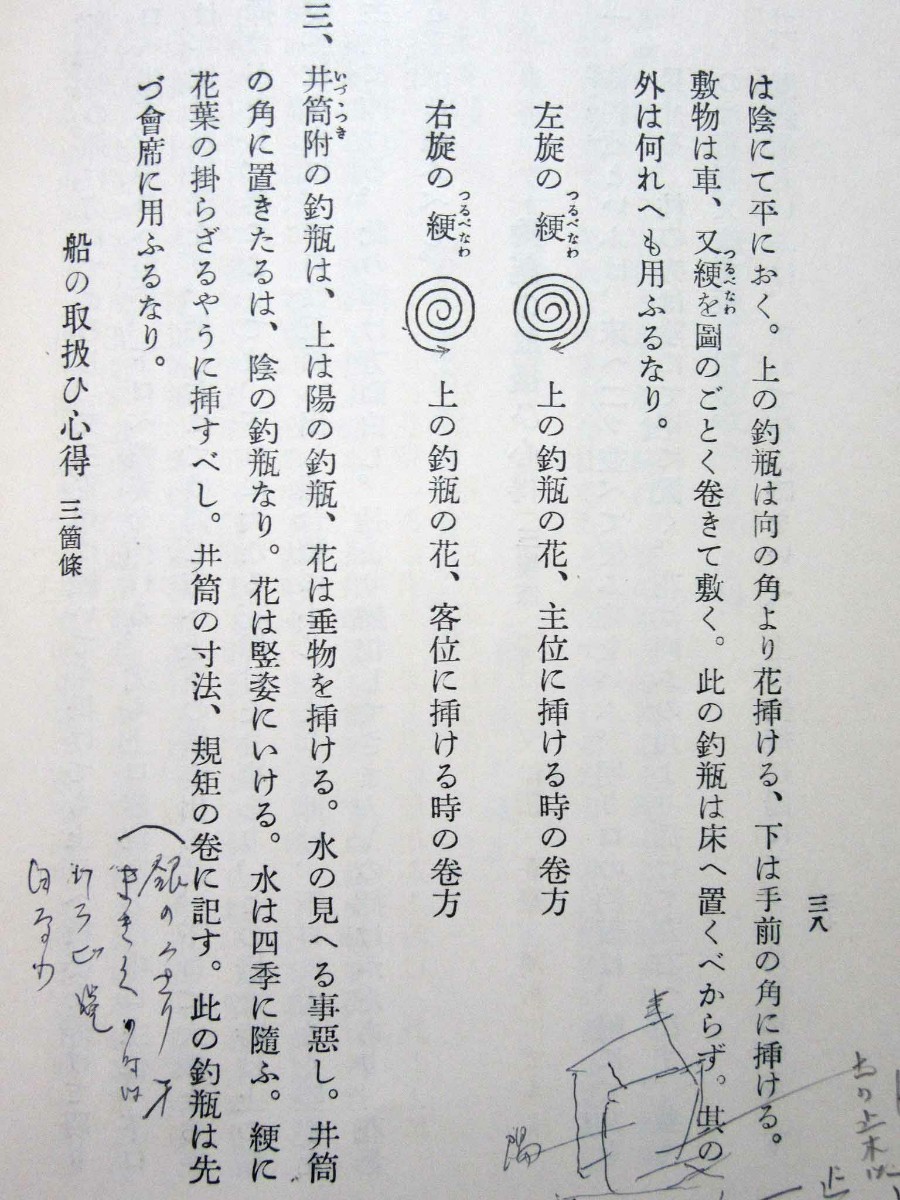 は陰にて平におく。上の釣瓶は向の角より花揷ける、下は手前の角に揷ける。
敷物は車、又綆を圖のごとく卷きて敷く。此の釣瓶は床へ置くべからず。其の
つるべなわ
外は何れへも用ふるなり。
左旋の綆 上の釣瓶の花、主位に揷ける時の卷方
つるべなわ
右旋の綆 上の釣瓶の花、客位に揷ける時の卷方
つるべなわ
三、井筒附の釣瓶は、上は陽の釣瓶、花は垂物を揷ける。水の見へる事惡し。井筒
いづゝつき
の角に置きたるは、陰の釣瓶なり。花は竪姿にいける。水は四季に隨ふ。綆に
花葉の掛らざるやうに揷すべし。井筒の寸法、規矩の卷に記す。此の釣瓶は先
づ會席に用ふるなり。
船の取扱ひ心得 三箇條
三八
陽